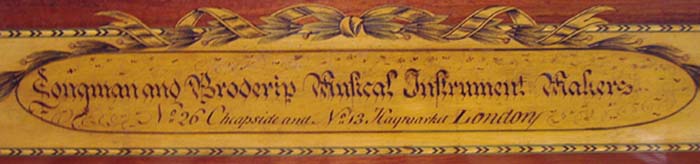 Longman and Broderip Musical Instrument Makers
No. 26 Cheapside and No. 13 Haymarket London